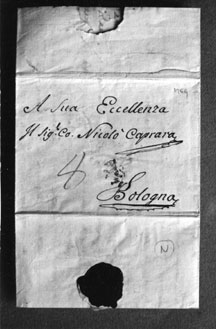 A Sua Eccellenza
Il Sigr. Co. Nicolò Caprara
8
Bologna
N